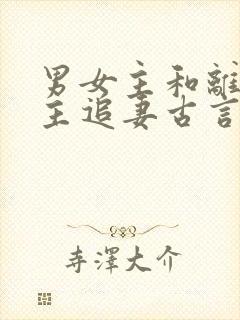 男女主和離
主追妻古言
寺澤大介